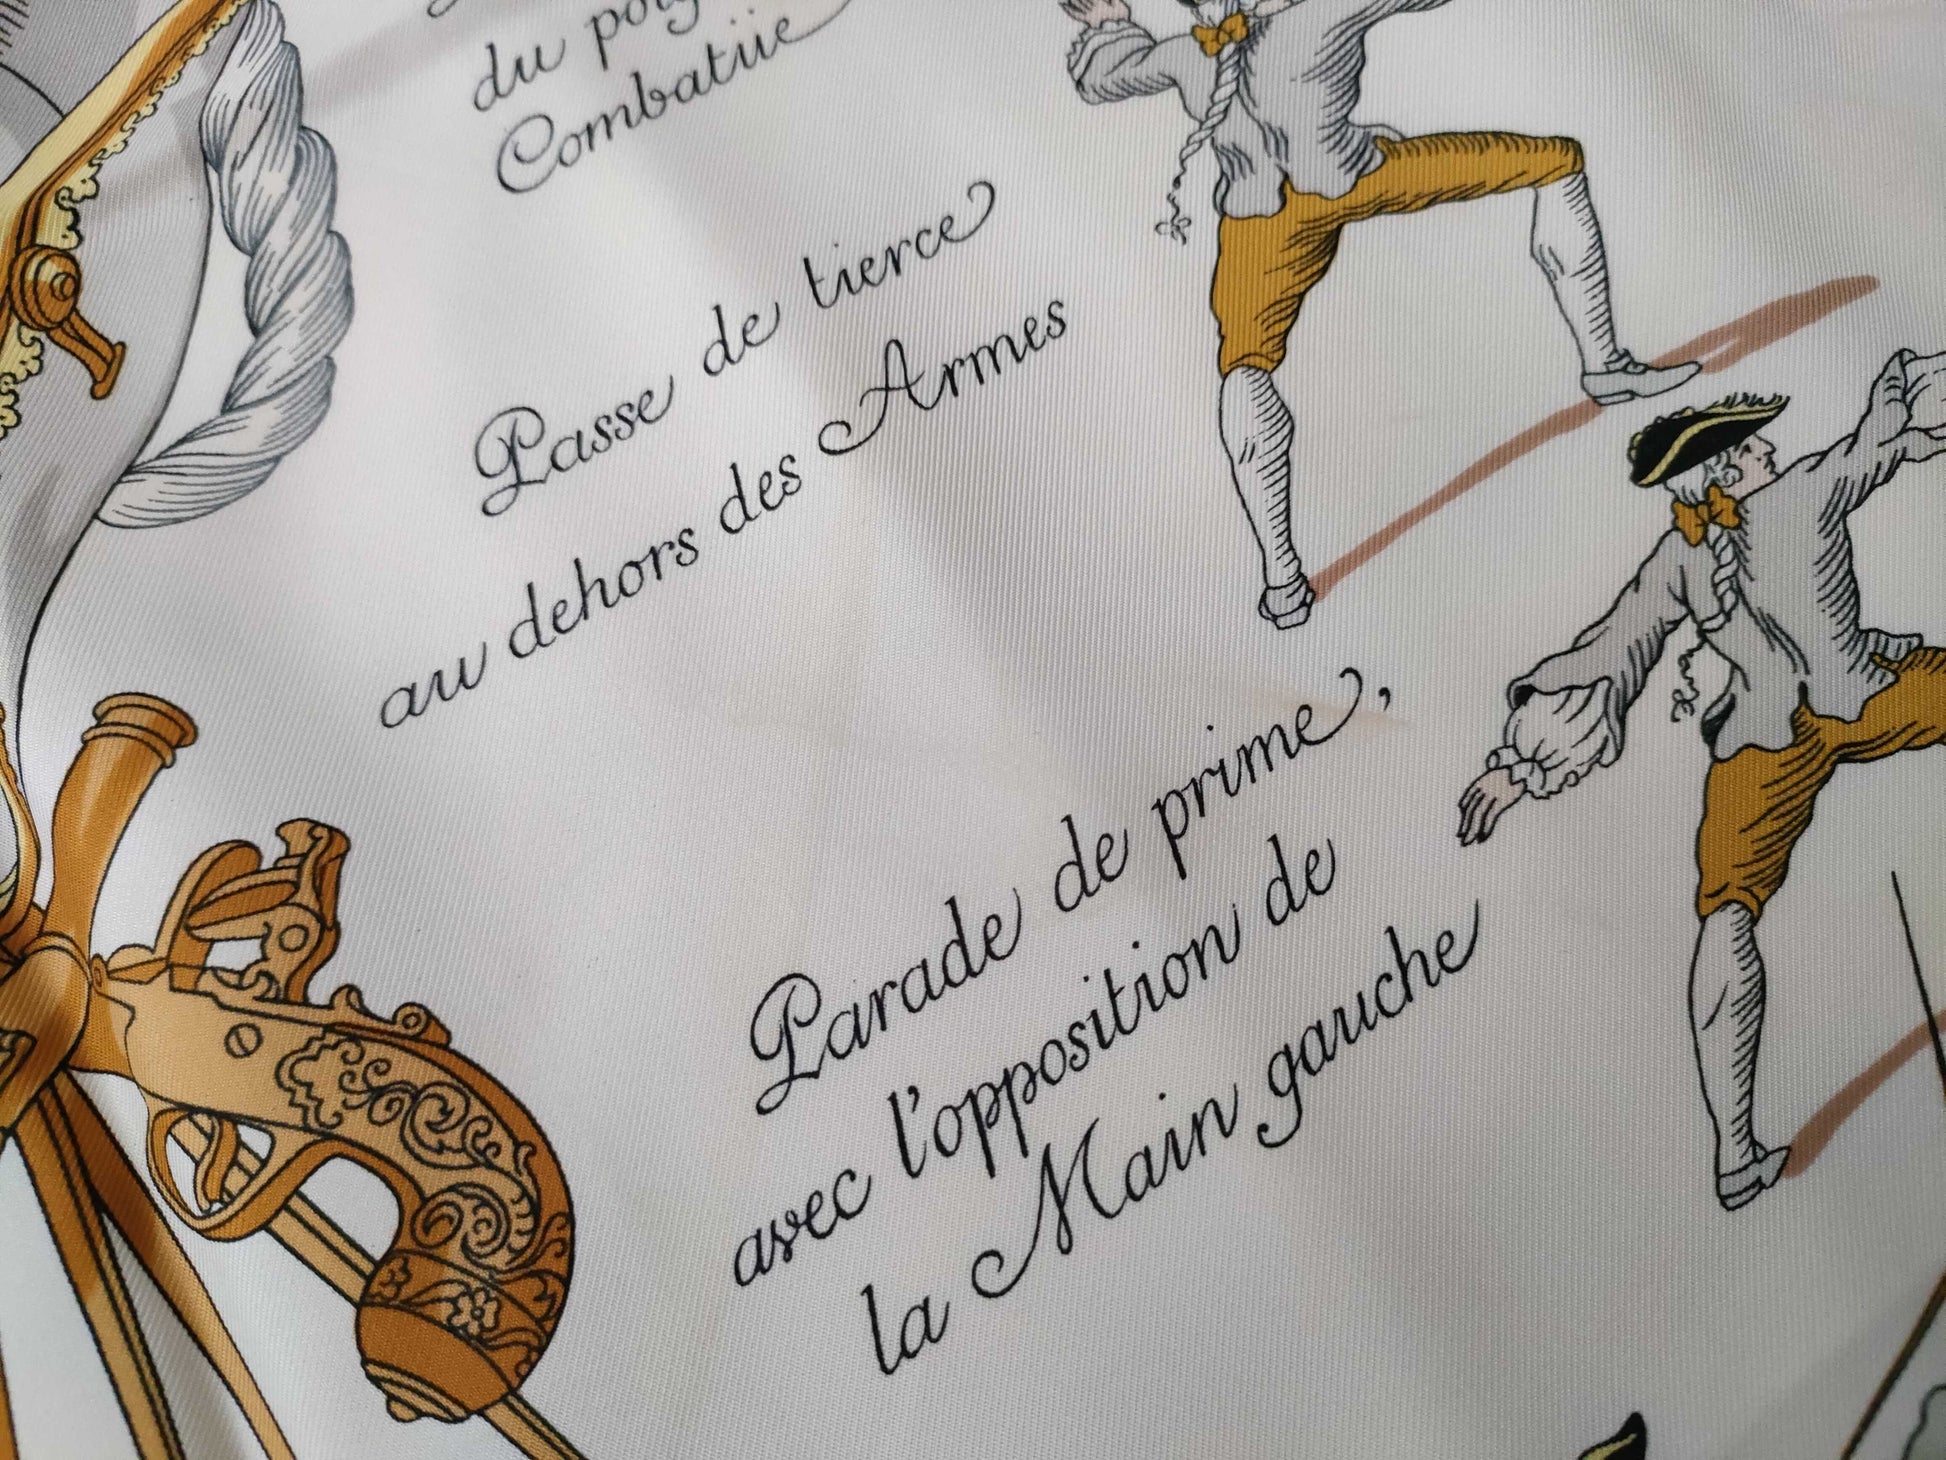 du
Combattue
Passe de tierce
au dehors des Armes
Parade de prime,
avec l'opposition de
la Main gauche